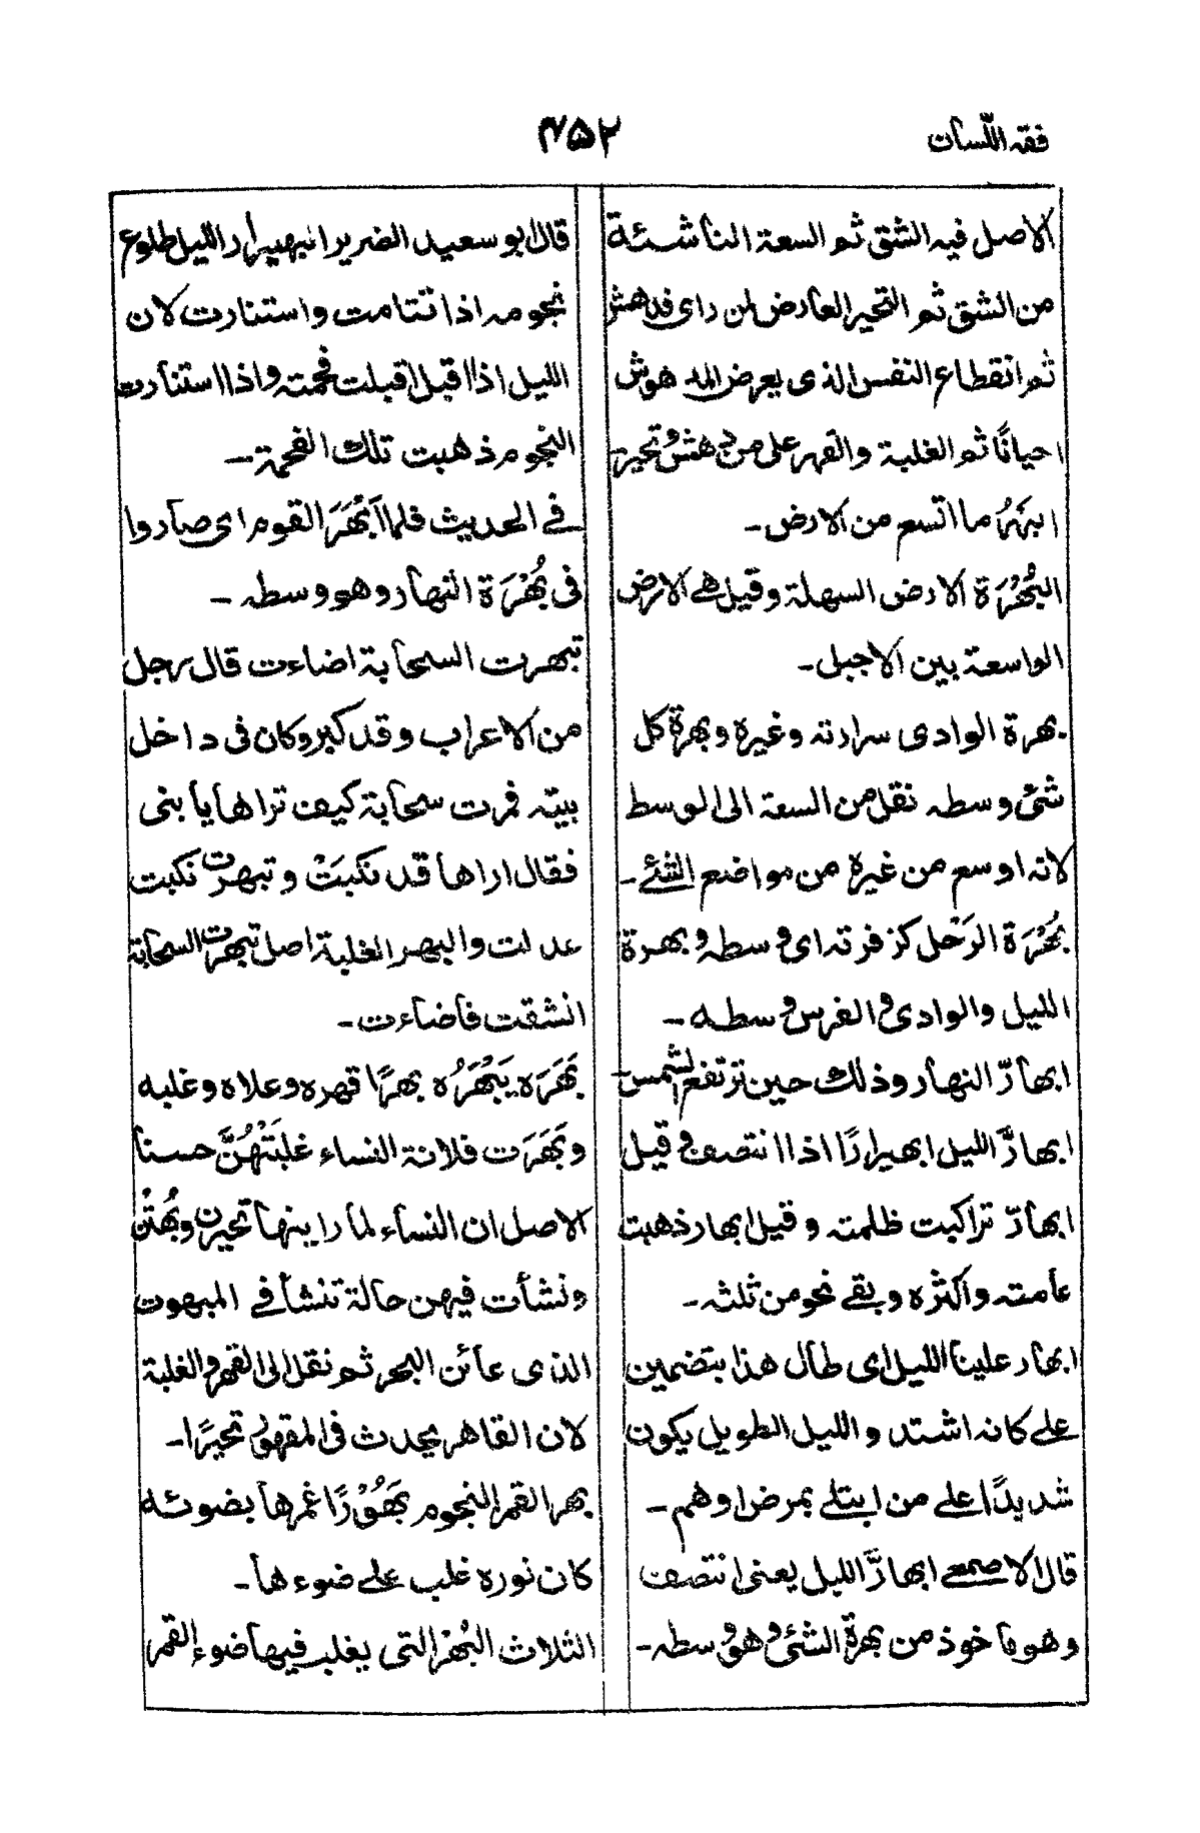 فقہ اللّسان
۴۵۲
الاصل فيه الشق ثم السعة الناشئة
من الشق ثم التحير العارض لمن راى فدهش
ثم انقطاع النفس الذى يعرض المدهوش
احيانًا ثم الغلبة والقهر على من دهش وتحير
البهرُ ما اتسع من الارض۔
البُهْرَة الارض السهلة وقيل هے الارض
الواسعة بين الاجبل۔
بهرة الوادى سرارته وغيره وبهرة كل
شئ وسطه نقل من السعة الى الوسط
لانه اوسع من غيره من مواضع الشئے۔
بُهْرَة الرَحْل كزفرته اى وسطه وبهرة
الليل والوادى والفرس وسطه۔
ابهارّ النهار وذلك حين ترتفع الشمس
ابهارَّ الليل ابهيرارًا اذا انتصف وقيل
ابهارّ تراكبت ظلمته وقيل ابهار ذهبت
عامته واكثره وبقے نحو من ثلثه۔
ابهار علينا الليل اى طال هذا بتضمين
علے كانه اشتد والليل الطويل يكون
شديدًا علے من ابتلے بمرض او هم۔
قال الاصمعے ابهارَّ الليل يعنى انتصف
وهو ماخوذ من بهرة الشئ وهو وسطه۔
قال ابو سعيد الضرير ابهيرار الليل طلوع
نجومه اذا تتامت واستنارت لان
الليل اذا اقبل اقبلت فحمته واذا استنارت
النجوم ذهبت تلك الفحمة۔
فے الحديث فلما اَبْهَرَ القوم اى صاروا
فى بُهْرَة النهار وهو وسطه۔
تبهرت السحابة اضاءت قال رجل
من الاعراب وقد كبر وكان فى داخل
بيته فمرت سحابة كيف تراها يا بنى
فقال اراها قد نكبتْ وتبهرت نكبت
عدلت والبهر الغلبة اصل تبهرت السحابة
انشقت فاضاءت۔
بَهَرَه يَبْهَرُه بهرًا قهره وعلاه وغلبه
وبَهَرَت فلانة النساء غلبَتْهُنَّ حسنا
الاصل ان النساء لما راينها تحيرن وبُهتْن
ونشأت فيهن حالة تنشأ فے المبهوت
الذى عائن البحر ثم نقل الى القهر والغلبة
لان القاهر يحدث فى المقهور تحيرًا۔
بهر القمر النجوم بَهُوْرًا غمرها بضوئه
كان نوره غلب علے ضوءها۔
الثلاث البُهْر التى يغلب فيها ضوء القمر